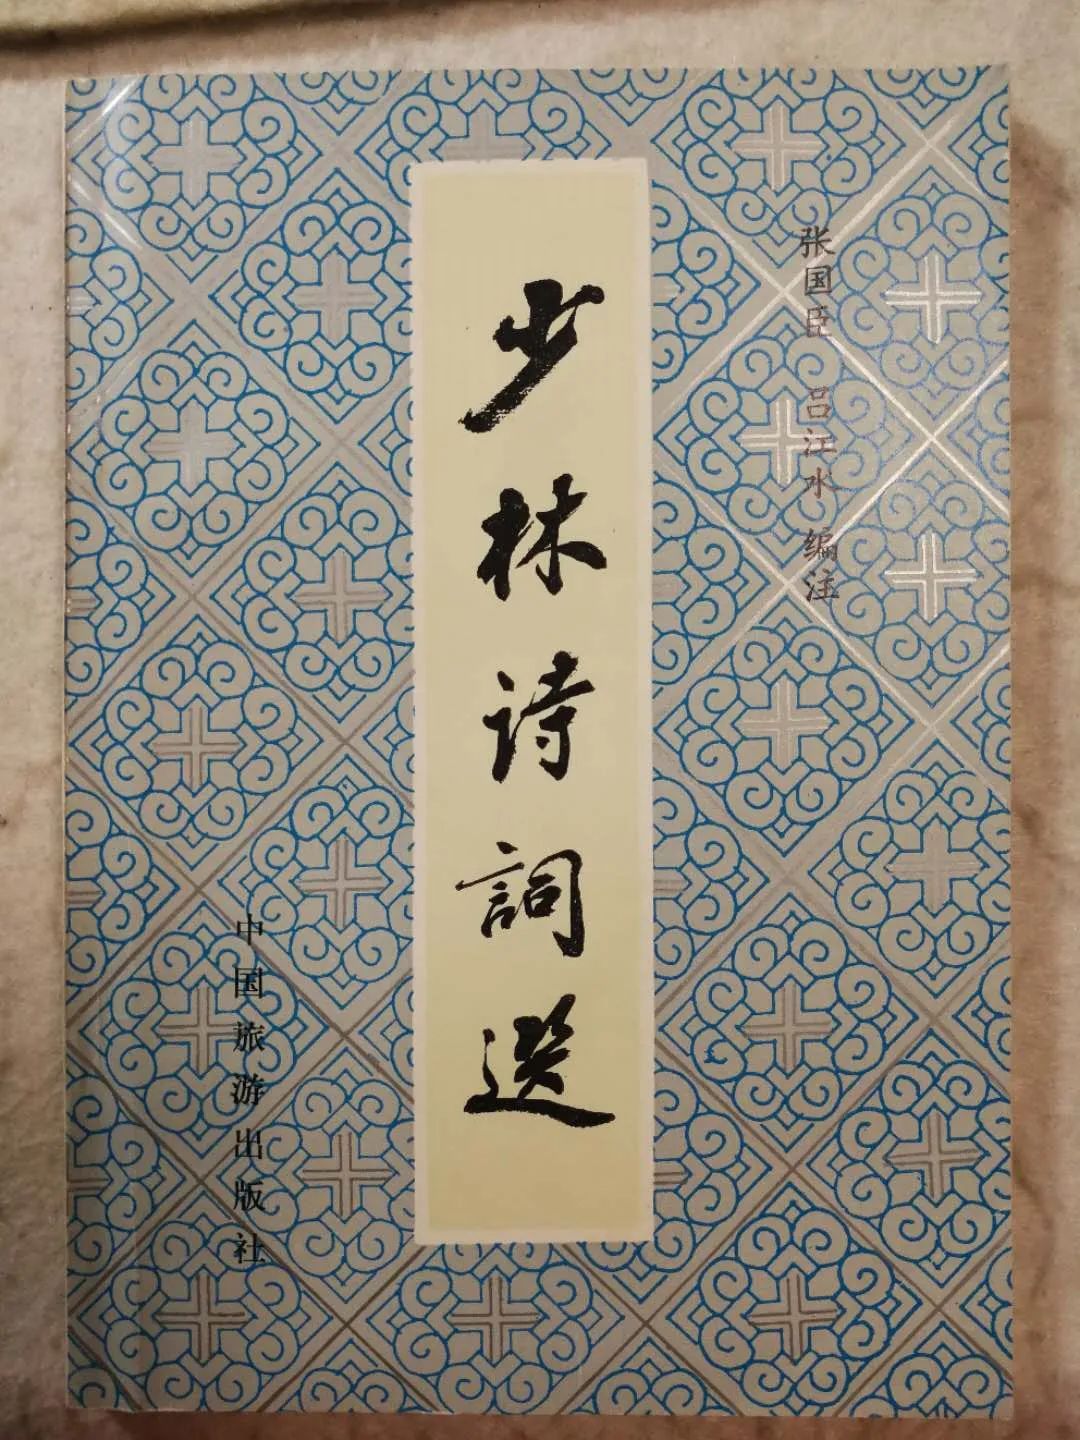 张国臣 吕江水 编注
少林诗詞选
中国旅游出版社